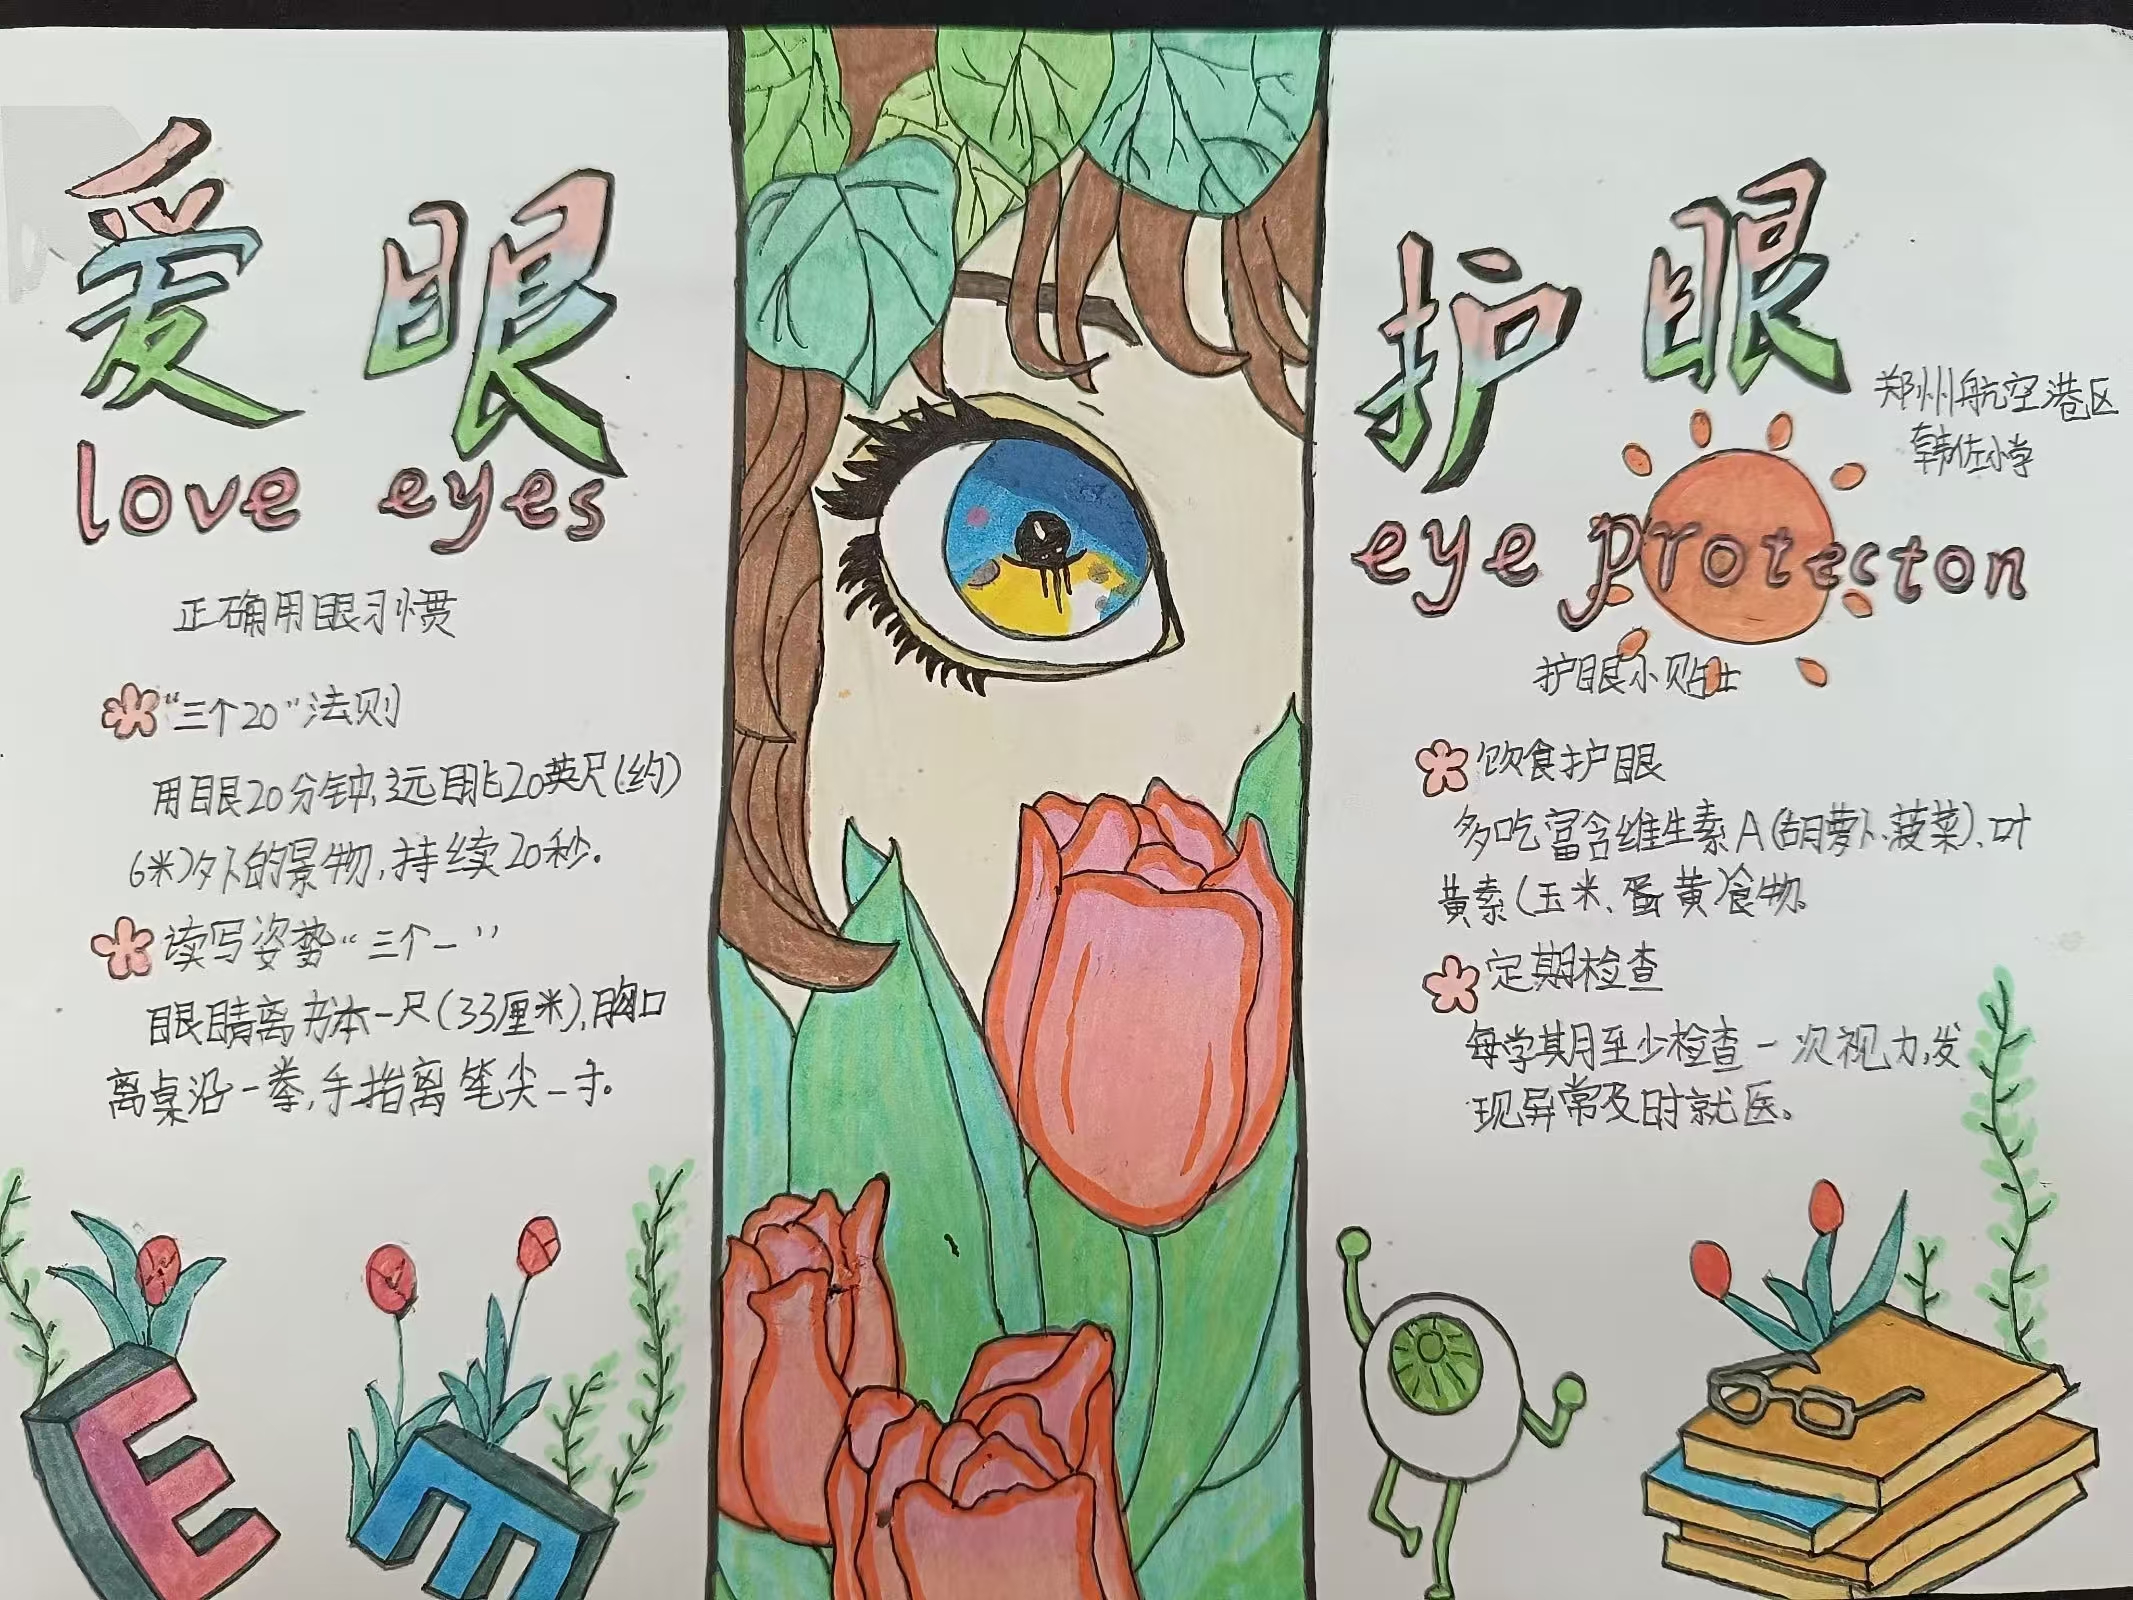 爱眼
love eyes
正确用眼习惯
"三个20"法则
用眼20分钟,远眺20英尺(约
6米)外的景物,持续20秒。
读写姿势"三个一"
眼睛离书本一尺(33厘米),胸口
离桌沿一拳,手指离笔尖一寸。
E
E
护眼
郑州航空港区
韩佐小学
eye protecton
护眼小贴士
饮食护眼
多吃富含维生素A(胡萝卜、菠菜)、叶
黄素(玉米、蛋黄)食物。
定期检查
每学期至少检查一次视力,发
现异常及时就医。